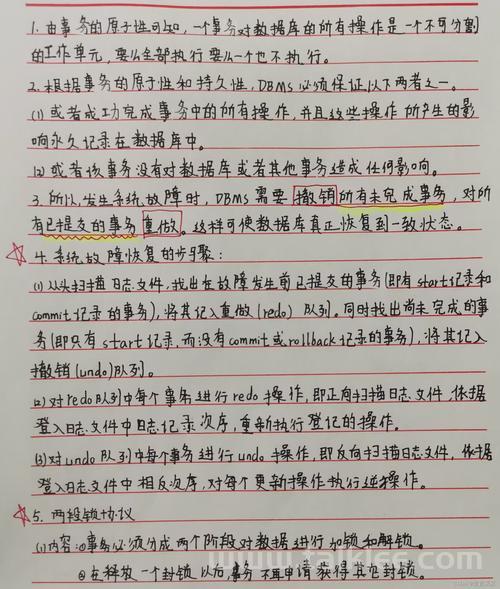 1. 由事务的原子性可知，一个事务对数据库的所有操作是一个不可分割
的工作单元，要么全部执行要么一个也不执行。
2. 根据事务的原子性和持久性，DBMS必须保证以下两者之一。
(1) 或者成功完成事务中的所有操作，并且这些操作所产生的影
响永久记录在数据库中。
(2) 或者该事务没有对数据库或者其他事务造成任何影响。
3. 所以，发生系统故障时，DBMS需要撤销所有未完成事务，对所
有已提交的事务重做。这样可使数据库真正恢复到一致状态。
☆ 4. 系统故障恢复的步骤：
(1) 从头扫描日志文件，找出在故障发生前已提交的事务(即有start记录和
commit记录的事务)，将其记入重做(redo)队列。同时找出尚未完成的事
务(即只有start记录，而没有commit或rollback记录的事务)，将其记入
撤销(undo)队列。
(2) 对redo队列中每个事务进行redo操作，即正向扫描日志文件，依据
登入日志文件中日志记录次序，重新执行登记的操作。
(3) 对undo队列中每个事务进行undo操作，即反向扫描日志文件，依据
登入日志文件中相反次序，对每个更新操作执行逆操作。
☆ 5. 两段锁协议
(1) 内容：①事务必须分成两个阶段对数据进行加锁和解锁。
②在释放一个封锁以后，事务不再申请获得其它封锁。
www.talklee.com